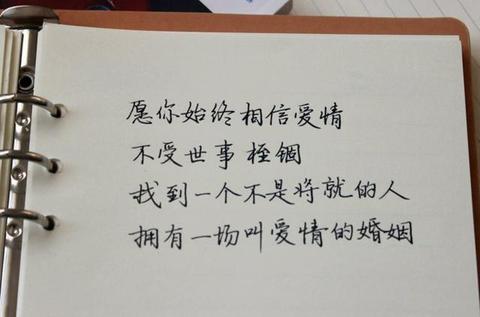 愿你始终相信爱情
不受世事桎锢
找到一个不是将就的人
拥有一场叫爱情的婚姻